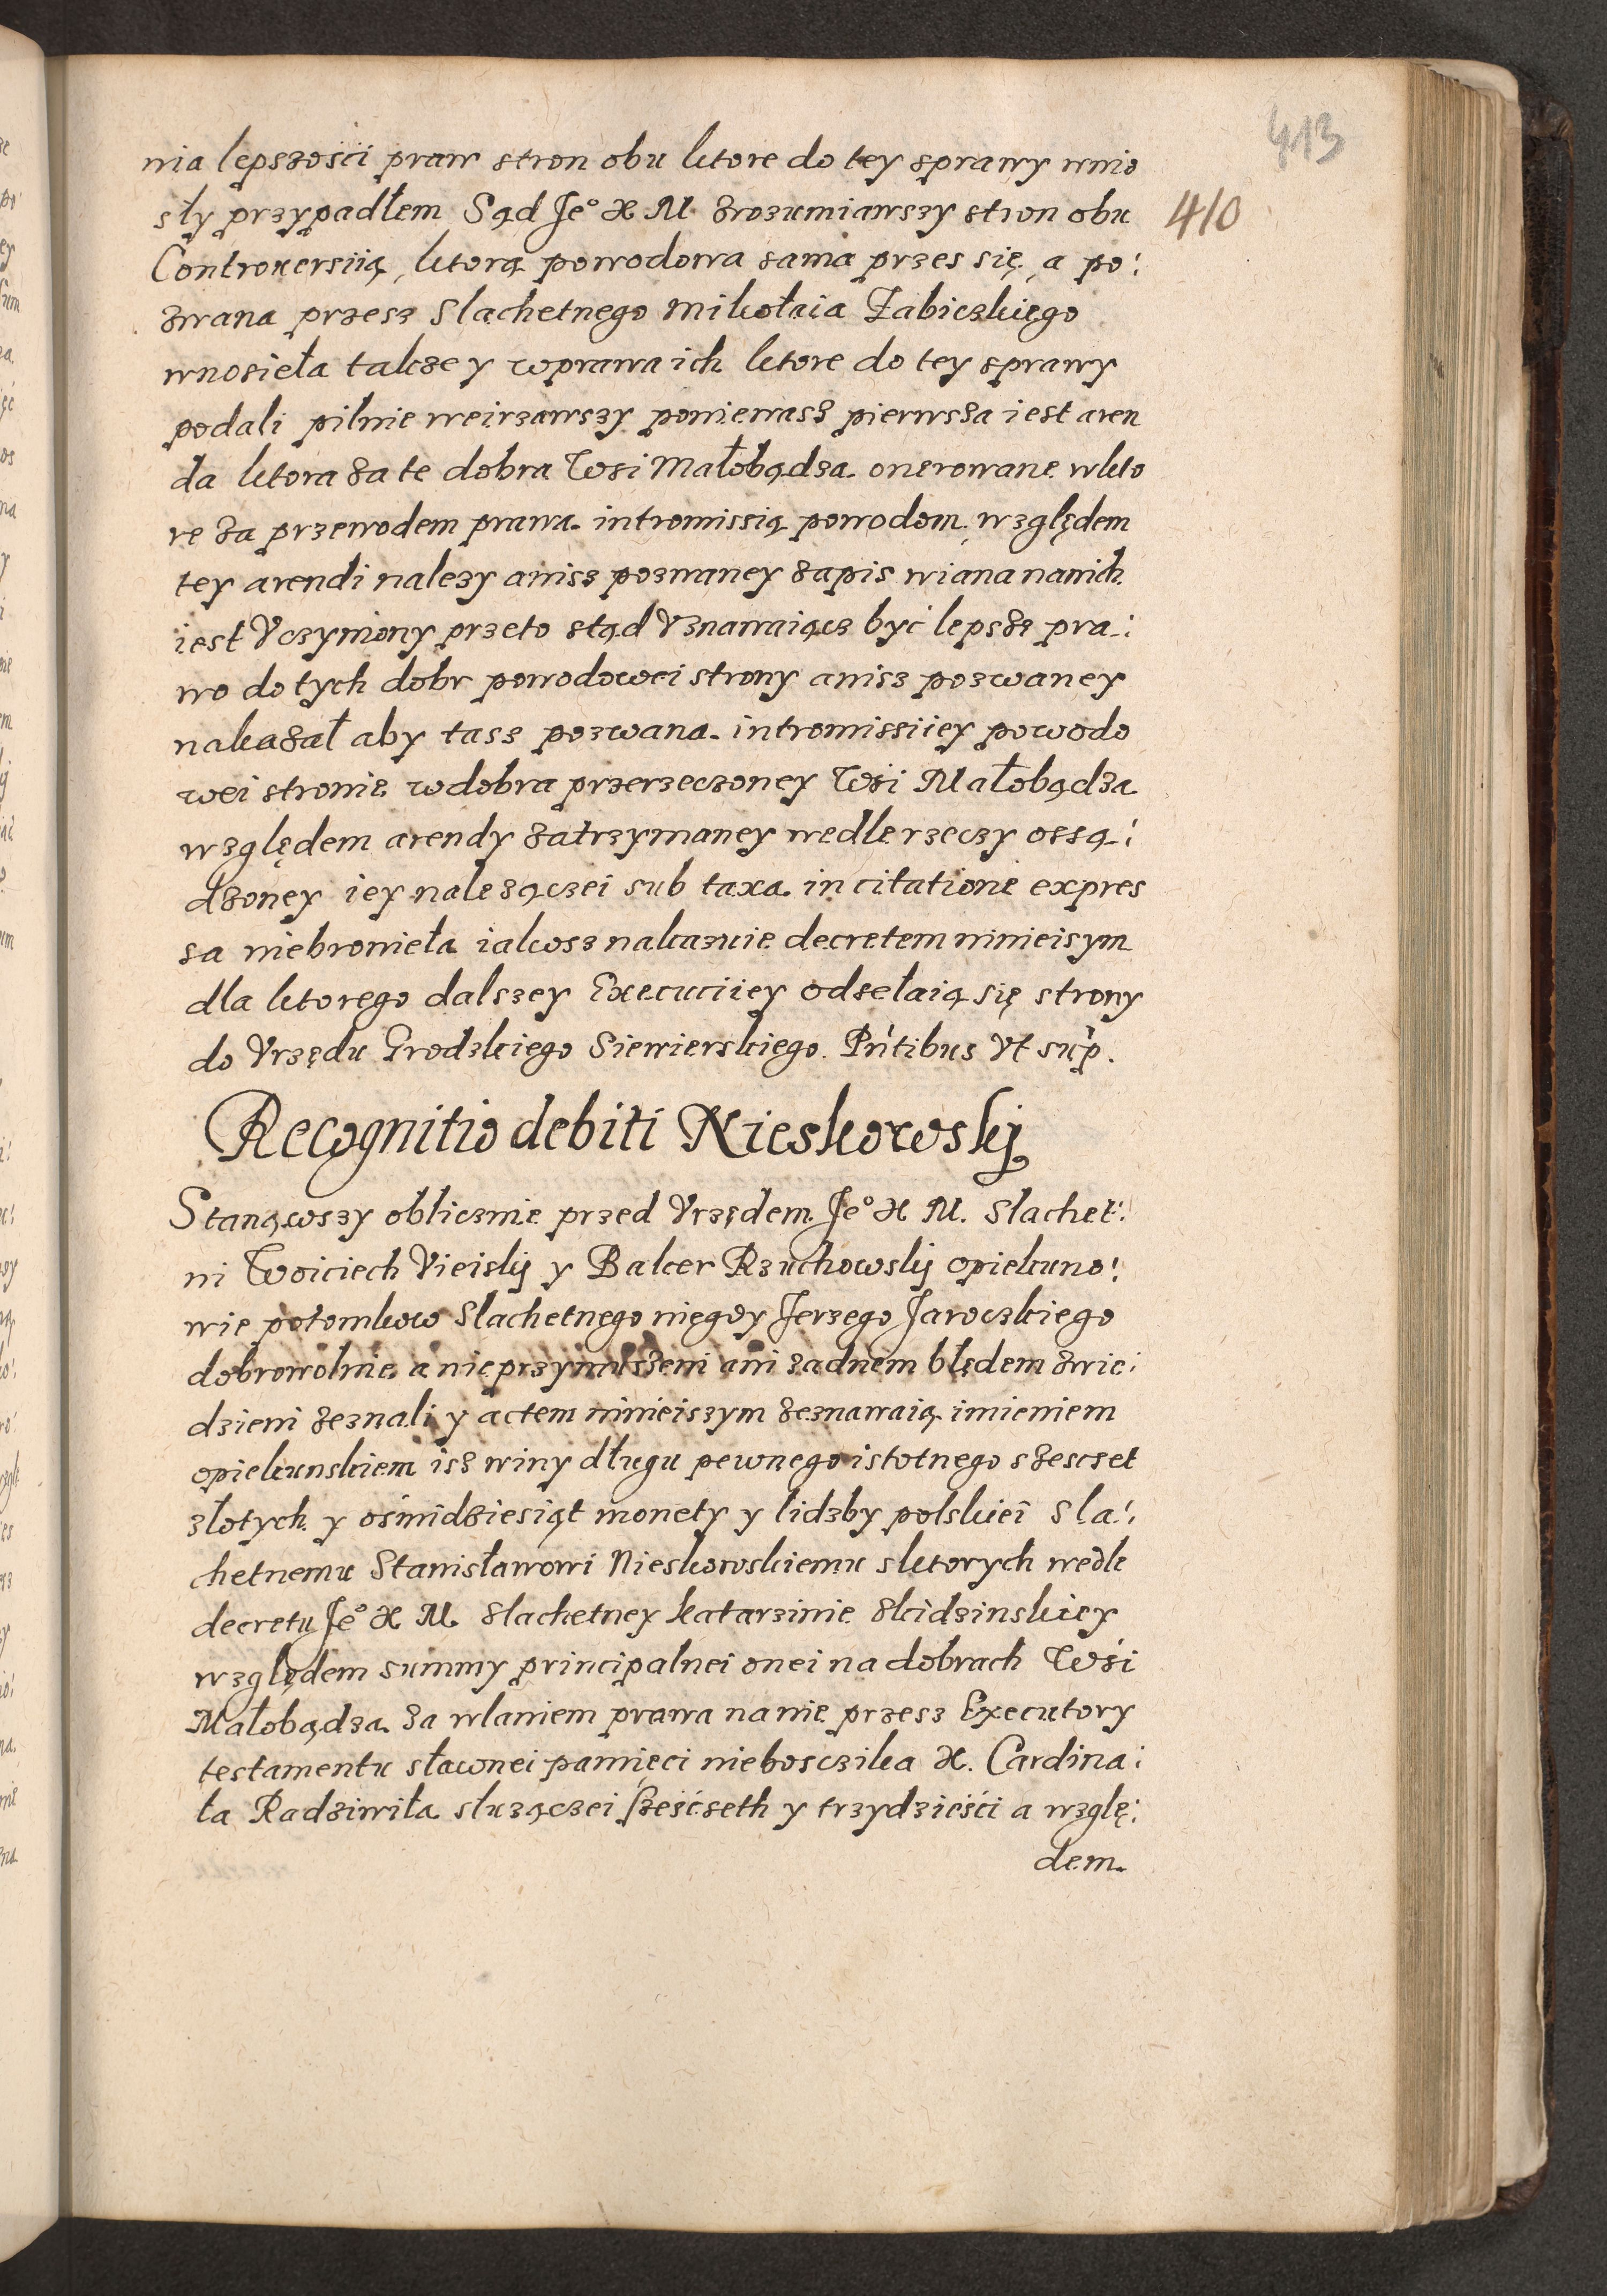 413
410
nia lepszości praw stron obu ktore do tey sprawy wnio
sły przypadłem Sąd Je° X M zrozumiawszy stron obu
Controuersiią, ktorą powodowa sama przes się, a po:
zwana przesz Slachetnego Mikołaia Żabiczkiego
wnosieła takze y wprawa ich ktore do tey sprawy
podali pilnie weirzawszy poniewasz pierwsza iest aren
da ktora za te dobra Wsi Małobądza onerowane wkto
re za przewodem prawa intromissią powodom względem
tey arendi nalezy anisz pozwaney zapis wiana nanich
iest Vczyniony przeto stąd Vznawaiącz byi lepsze pra:
wo do tych dobr powodowei strony anisz pozwaney
nakazał aby tasz pozwana intromissiiey powodo
wei stronie wdobra przerzeczoney Wsi Małobądza
względem arendy zatrzymaney wedle rzeczy ossą:
dzoney iey nalezączei sub taxa in citatione expres
sa niebronieła iakosz nakazuie decretem ninieisym
dla ktorego dalszey Execuciiey odsełaią się strony
do Vrzędu Grodzkiego Siewierskiego. Pntibus Vt sup.
Recognitio debiti Nieskowskij
Stanąwszy oblicznie przed Vrzędem Je° X M. Slachet:
ni Woiciech Vieiskij y Balcer Rzuchowskij opiekuno:
wie potomkow Slachetnego niegdy Jerzego Jaroczkiego
dobrowolnie a nie przymuszeni ani zadnem błędem zwie:
dzieni zeznali y actem ninieiszym zeznawaią imieniem
opiekunskiem isz winy długu pewnego istotnego szesczet
złotych y ośmidziesiąt monety y lidzby polskiei Sla:
chetnemu Stanisławowi Nieskowskiemu sktorych wedle
decretu Je° X M Slachetney Katarzinie Skidzinskiey
względem summy principalnei onei na dobrach Wśi
Małobądza za wlaniem prawa na nie przesz Executory
testamentu sławnei pamięci niebosczika X. Cardina:
ła Radziwiła służączei sześćseth y trzydzieści a wzglę:
dem